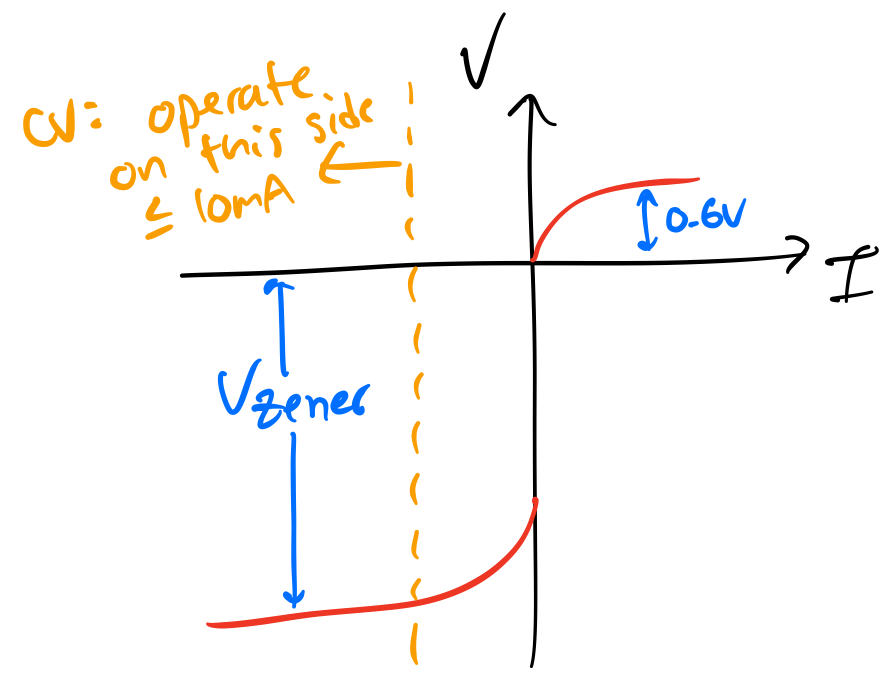 V
CV: operate
on this side
≤ 10mA
0.6V
I
Vzener